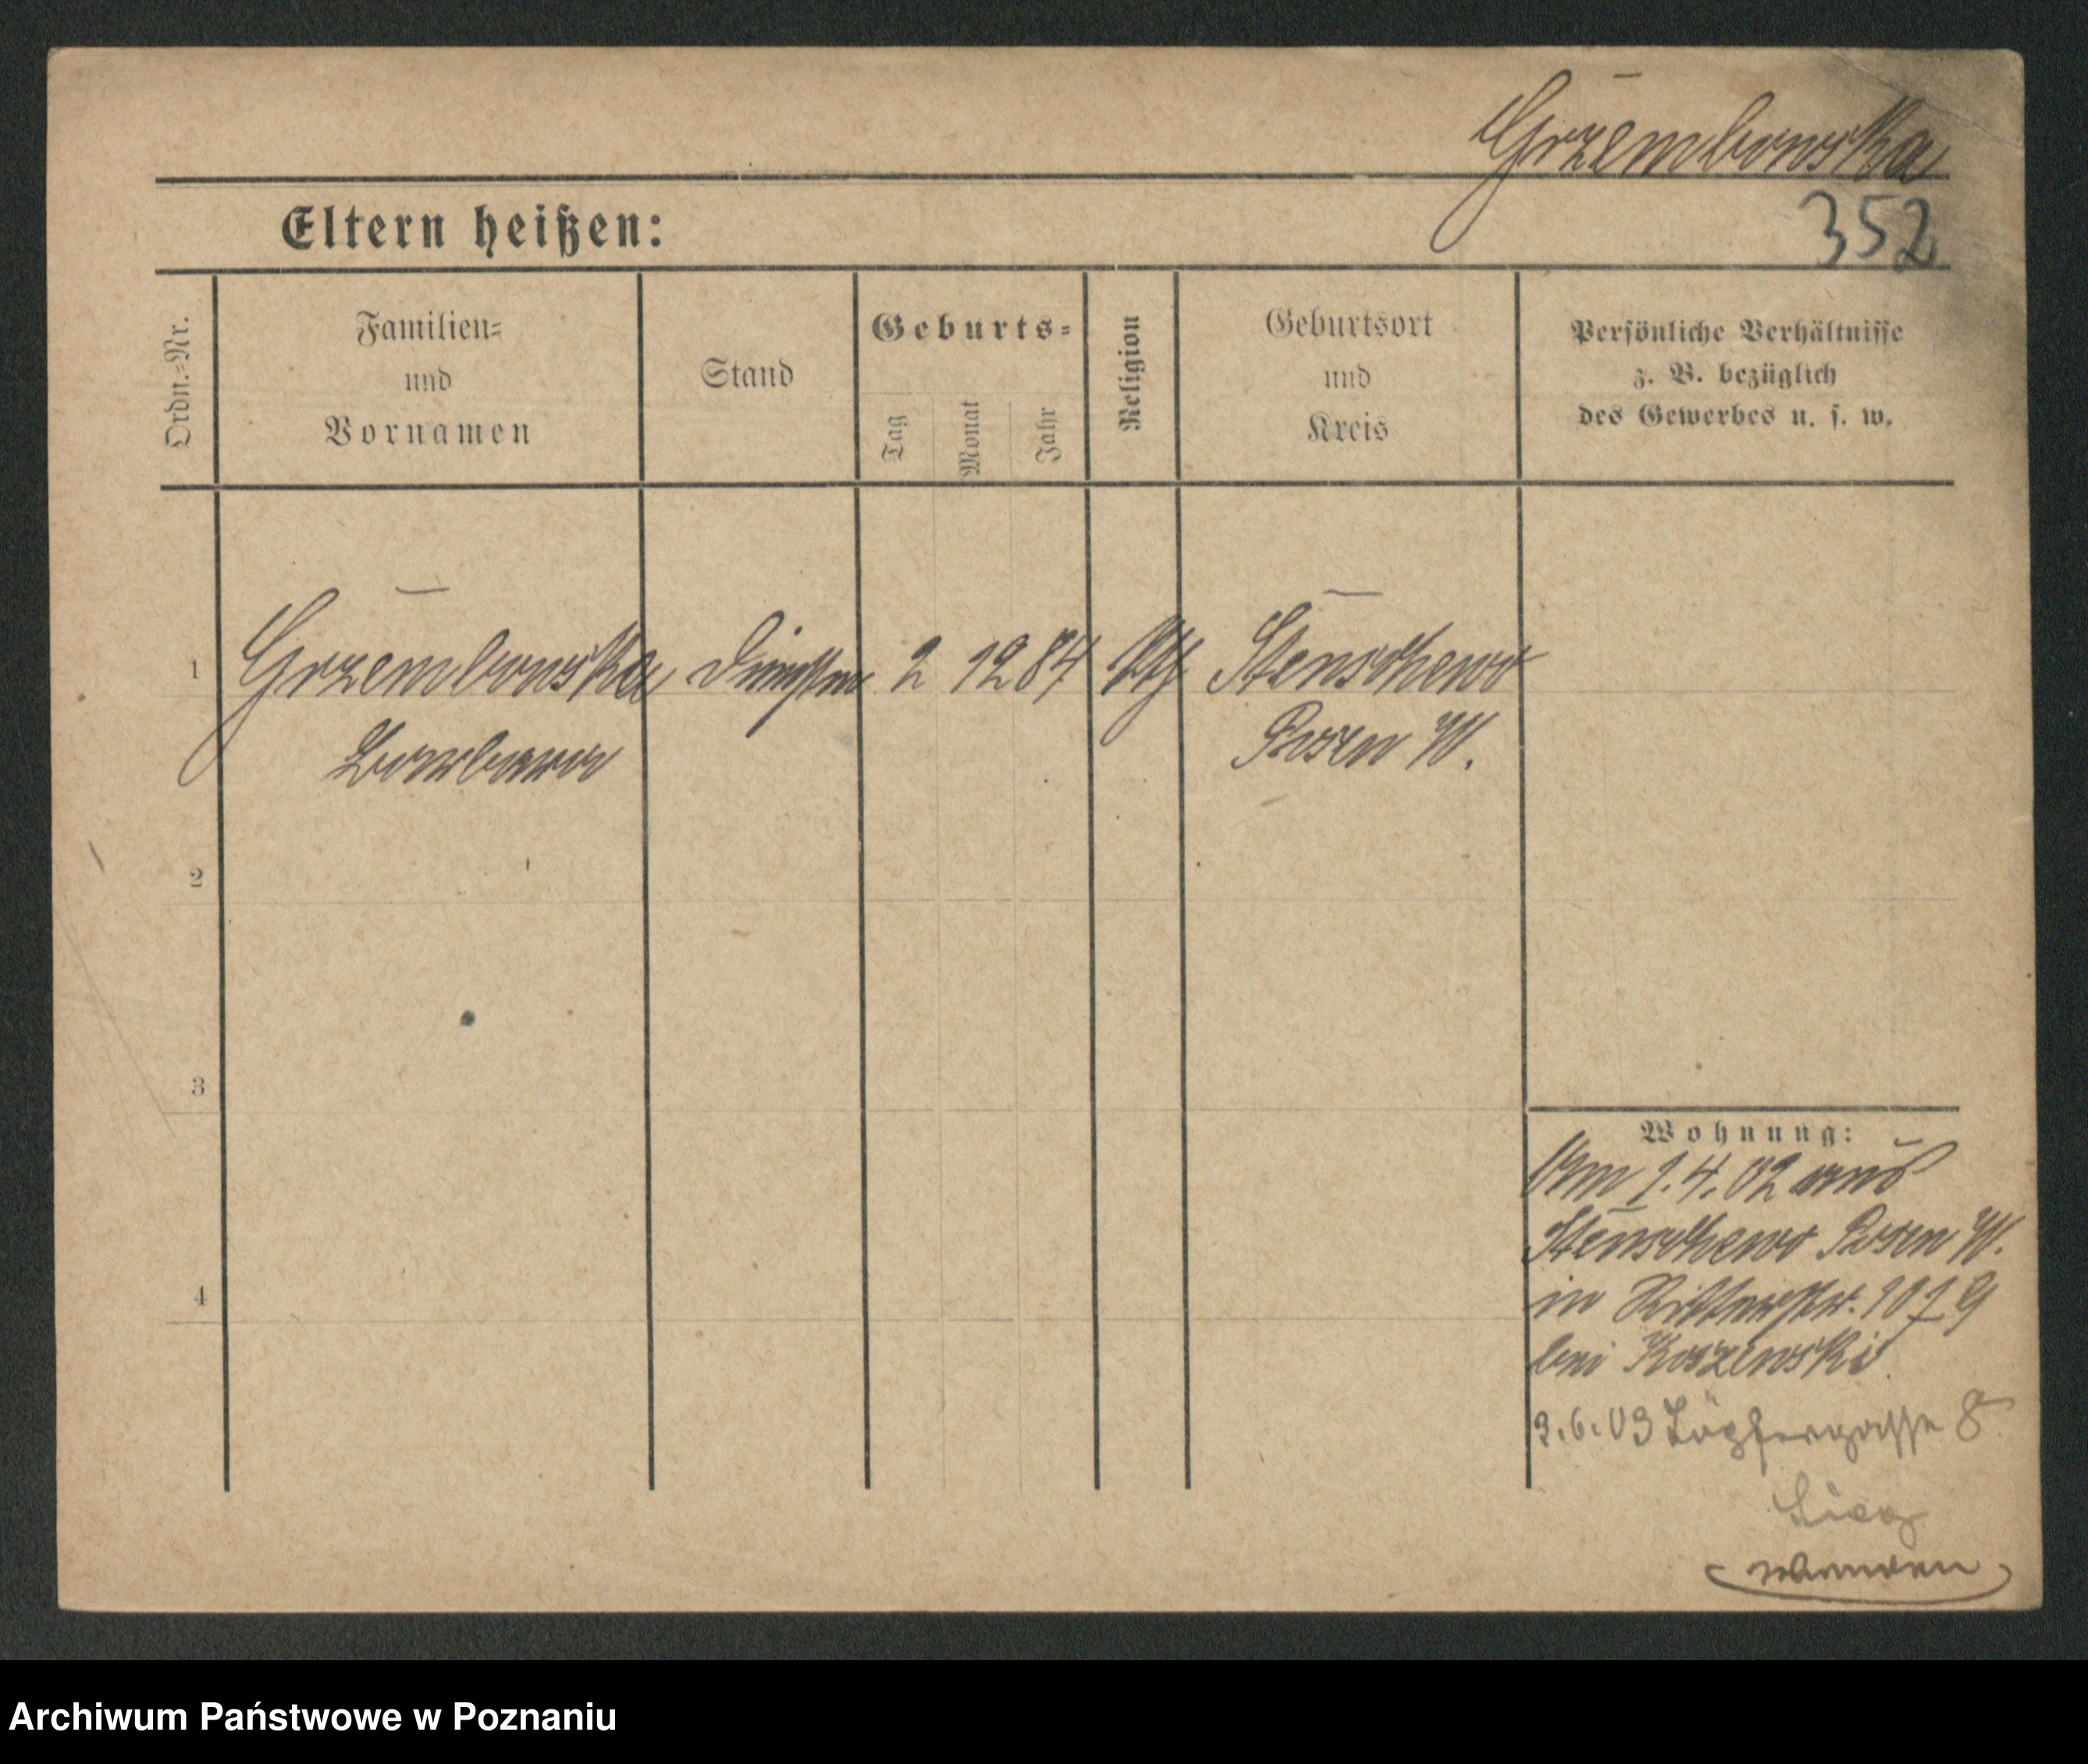 Grzembowska
352
Eltern heißen:
Ordn.-Nr.
Familien-
und
Vornamen
Stand
Geburts-
Tag
Monat
Jahr
Religion
Geburtsort
und
Kreis
Persönliche Verhältnisse
z. B. bezüglich
des Gewerbes u. s. w.
1 Grzembowska 2 12 84 kth Stenschewo
Barbara Posen W.
2
3
4
Wohnung:
Am 1.4.02 aus
Stenschewo Posen W.
in Ritterstr.
bei Koszewski
3.6.03 Töpfergasse 8
Archiwum Państwowe w Poznaniu